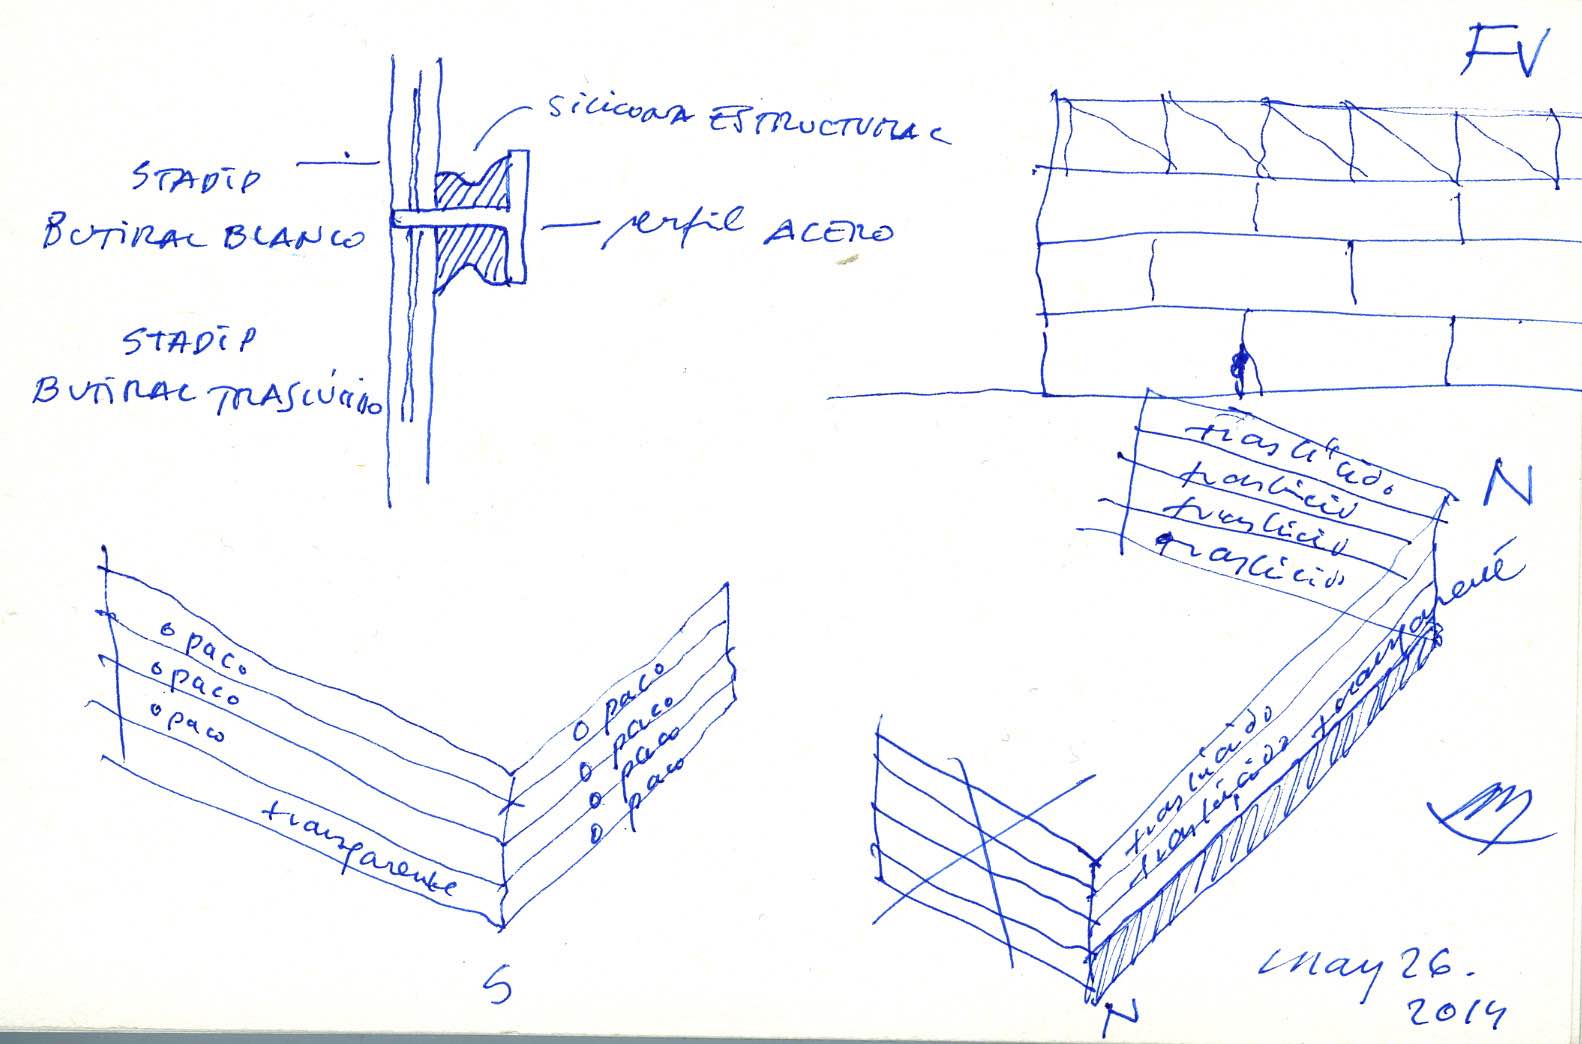 FV
SILICONA ESTRUCTURAL
STADIP
BUTIRAL BLANCO
perfil ACERO
STADIP
BUTIRAL TRASLÚCIDO
traslúcido
traslúcido
traslúcido
traslúcido
N
opaco
opaco
opaco
transparente
opaco
opaco
opaco
opaco
S
traslúcido
traslúcido
transparente
N
may 26.
2014